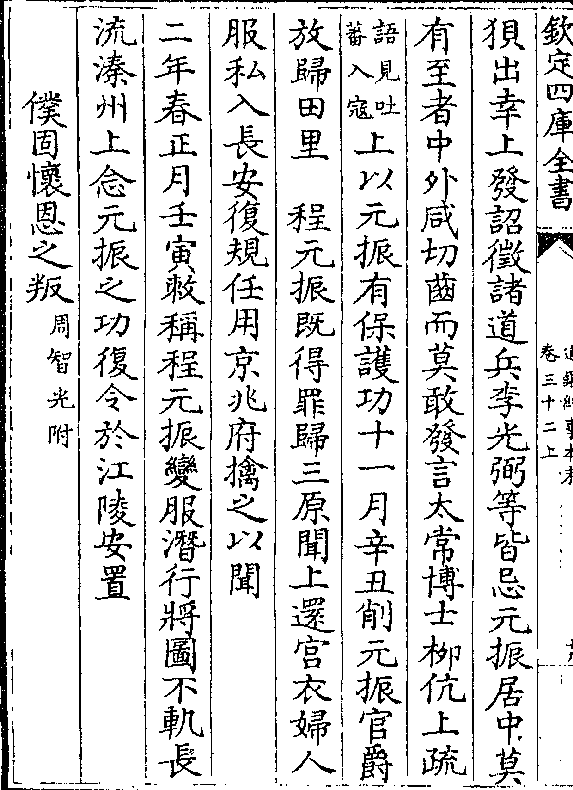 欽定四庫全書
卷三十二上
狽出幸上發詔徵諸道兵李光弼等皆忌元振居中莫
有至者中外咸切齒而莫敢發言太常博士栁伉上疏
語見吐
蕃入寇
上以元振有保護功十一月辛丑削元振官爵
放歸田里　程元振既得罪歸三原聞上還宫衣婦人
服私入長安復規任用京兆府擒之以聞
二年春正月壬寅敕稱程元振變服潛行將圖不軌長
流溱州上念元振之功復令於江陵安置
僕固懷恩之叛
周智光附